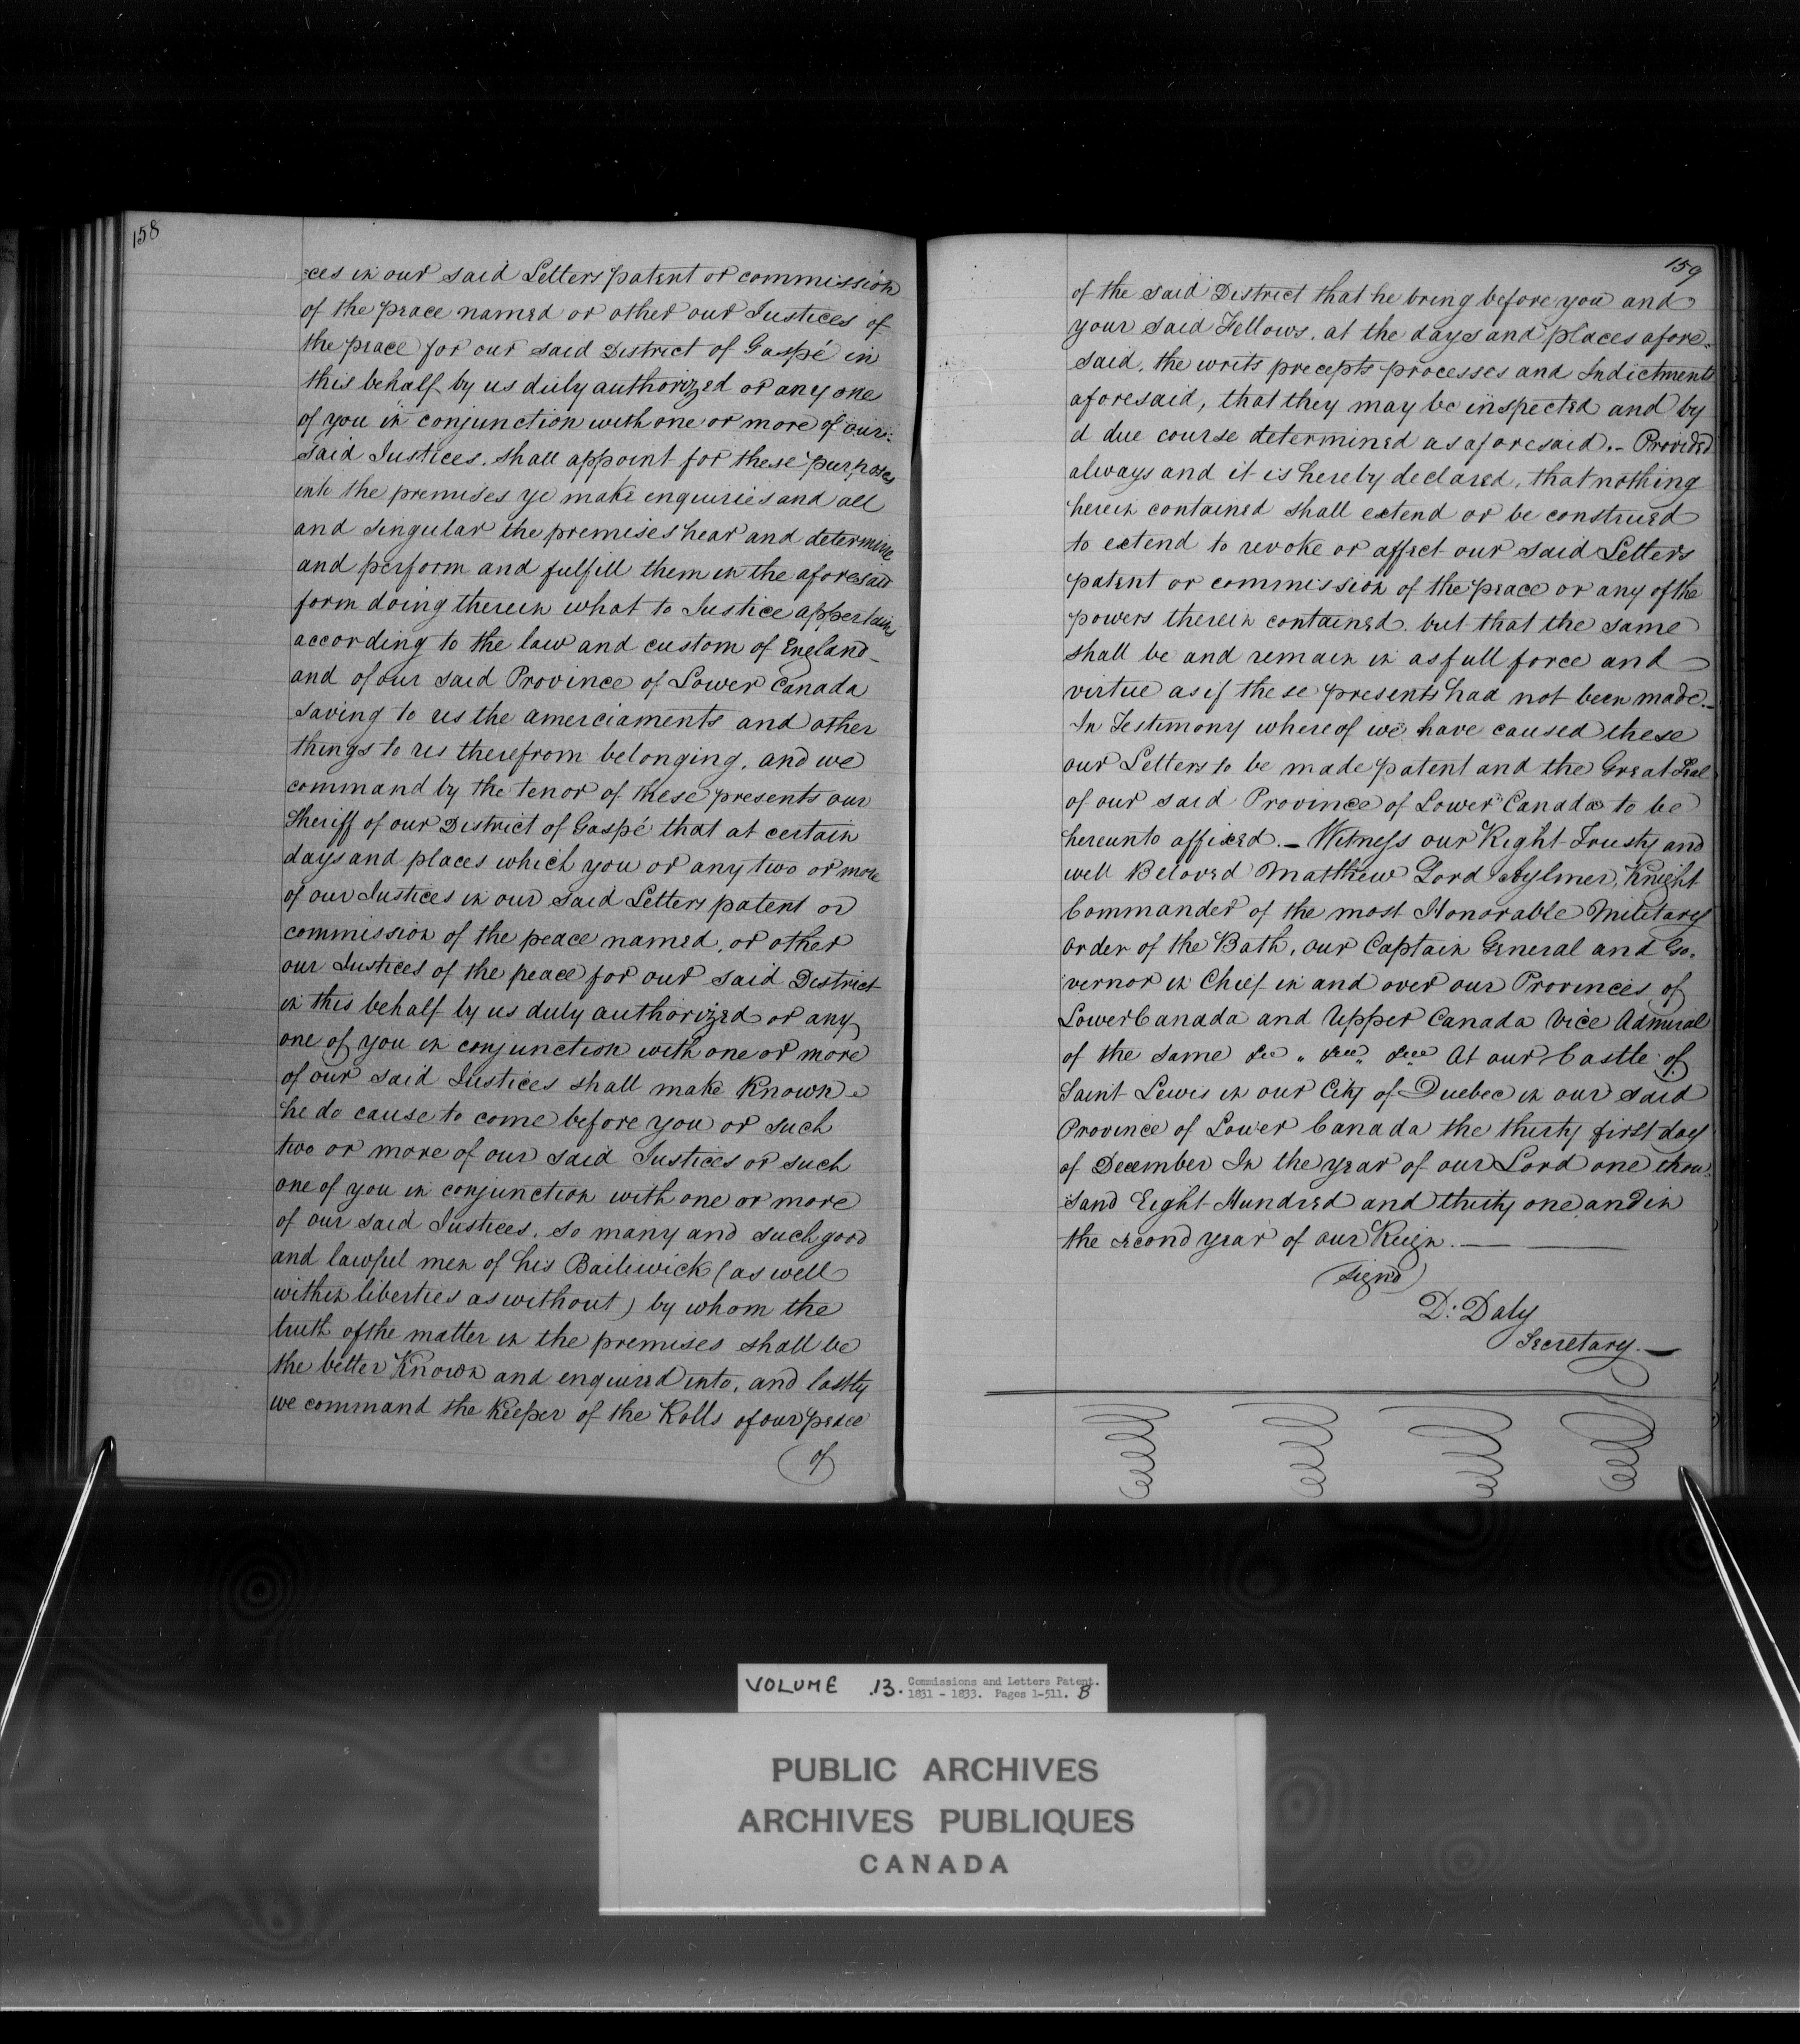 158
=ces in our said Letters patent or commission
of the peace named or other our Justices of
the peace for our said District of Gaspé in
this behalf by us duly authorized or any one
of you in conjunction with one or more of our
said Justices, shall appoint for these purposes
into the premises ye make enquiries and all
and singular the premises hear and determine
and perform and fulfill them in the aforesaid
form doing therein what to Justice appertains
according to the law and custom of England
and of our said Province of Lower Canada
saving to us the amerciaments and other
things to us therefrom belonging, and we
command by the tenor of these presents our
Sheriff of our District of Gaspé that at certain
days and places which you or any two or more
of our Justices in our said Letters patent or
commission of the peace named, or other
our Justices of the peace for our said District
in this behalf by us duly authorized or any
one of you in conjunction with one or more
of our said Justices shall make Known
he do cause to come before you or such
two or more of our said Justices or such
one of you in conjunction with one or more
of our said Justices, so many and such good
and lawful men of his Bailiwick (as well
within liberties as without) by whom the
truth of the matter in the premises shall be
the better Known and enquired into, and lastly
we command the Keeper of the Rolls of our peace
of
159
of the said District that he bring before you and
your said Fellows, at the days and places afore-
said, the writs precepts processes and Indictments
aforesaid, that they may be inspected and by
d due course determined as aforesaid.- Provided
always and it is hereby declared, that nothing
herein contained shall extend or be construed
to extend to revoke or affect our said Letters
patent or commission of the peace or any of the
powers therein contained. but that the same
shall be and remain in as full force and
virtue as if these presents had not been made.-
In Testimony whereof we have caused these
our Letters to be made patent and the Great Seal
of our said Province of Lower Canada to be
hereunto affixed.- Witness our Right Trusty and
well Beloved Matthew Lord Aylmer, Knight
Commander of the most Honorable Military
order of the Bath, our Captain General and Go-
vernor in Chief in and over our Provinces of
Lower Canada and Upper Canada Vice Admiral
of the same &c " &c " &c At our Castle of
Saint Lewis in our City of Quebec in our said
Province of Lower Canada the thirty first day
of December In the year of our Lord one thou-
sand Eight Hundred and thirty one and in
the second year of our Reign.-
(signd)
D: Daly
Secretary.-
VOLUME 13. Commissions and Letters Patent.
1831 - 1833. Pages 1-511. B
PUBLIC ARCHIVES
ARCHIVES PUBLIQUES
CANADA